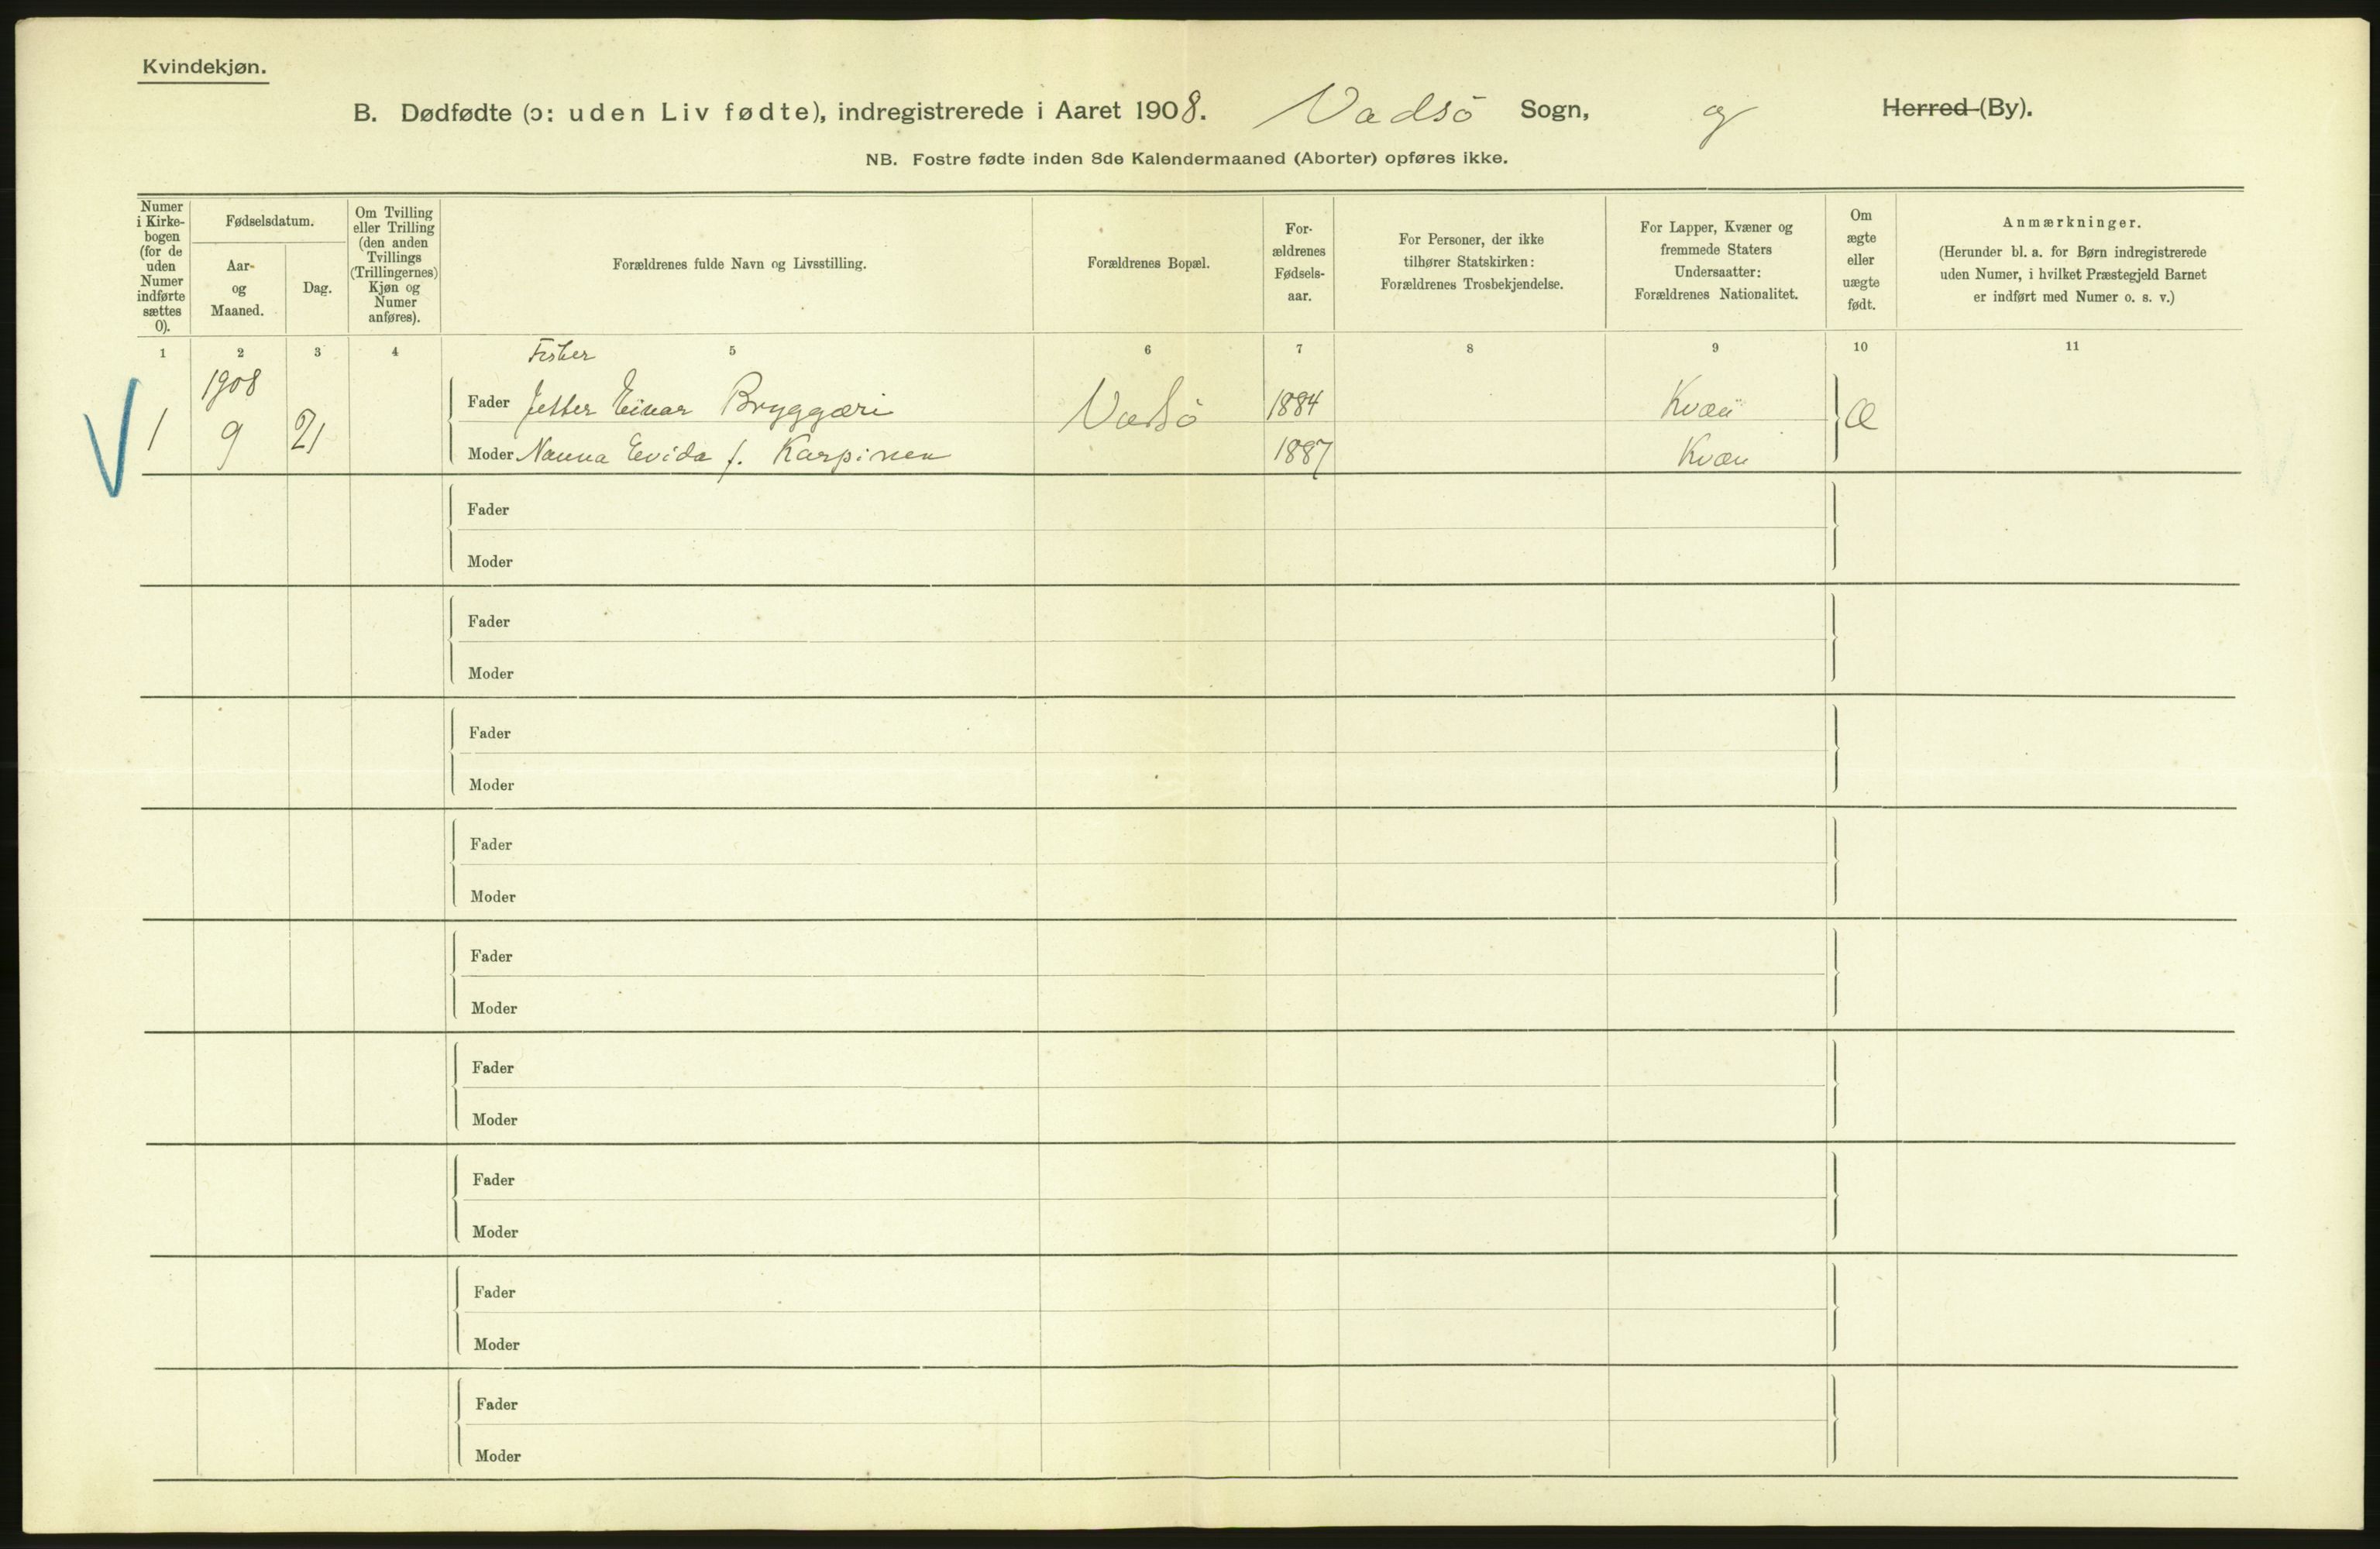 Kvindekjøn.
B. Dødfødte (ɔ: uden Liv fødte), indregistrerede i Aaret 1908. Vadsö Sogn, og Herred (By).
NB. Fostre fødte inden 8de Kalendermaaned (Aborter) opføres ikke.
Numer
i Kirke-
bogen
(for de
uden
Numer
indførte
sættes
0).
Fødselsdatum.
Aar-
og
Maaned.
Dag.
Om Tvilling
eller Trilling
(den anden
Tvillings
(Trillingernes)
Kjøn og
Numer
anføres).
Forældrenes fulde Navn og Livsstilling.
Forældrenes Bopæl.
For-
ældrenes
Fødsels-
aar.
For Personer, der ikke
tilhører Statskirken:
Forældrenes Trosbekjendelse.
For Lapper, Kvæner og
fremmede Staters
Undersaatter:
Forældrenes Nationalitet.
Om
ægte
eller
uægte
født.
Anmærkninger.
(Herunder bl. a. for Børn indregistrerede
uden Numer, i hvilket Præstegjeld Barnet
er indført med Numer o. s. v.)
1 2 3 4 5 6 7 8 9 10 11
Fisker
1908
1 9 21
Fader Einar Bryggæri Vadsö 1884 Kvæn Æ
Moder Nanna Evida f. Karpinen 1887 Kvæn
Fader
Moder
Fader
Moder
Fader
Moder
Fader
Moder
Fader
Moder
Fader
Moder
Fader
Moder
Fader
Moder
Fader
Moder